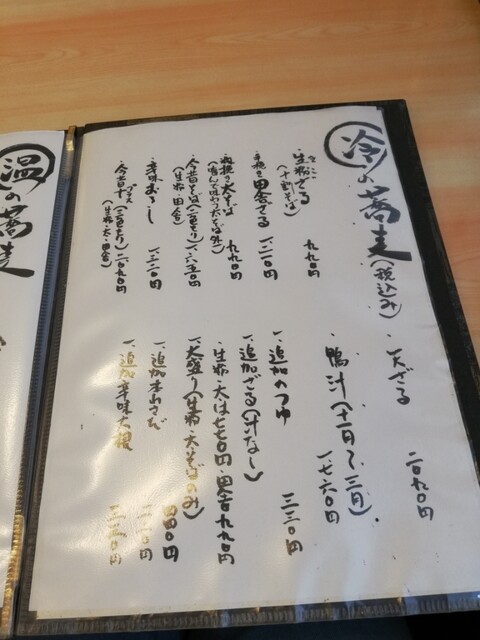 冷の蕎麦(税込み)
・生粉ざる
(十割そば)
九九〇円
・手挽き田舎ざる
一、一二〇円
・粗挽き太そば
九九〇円
・今昔そば(二色もり)一、六五〇円
(生粉・田舎)
・辛味おろし
一、三二〇円
・今昔+プラス(三色もり)二〇九〇円
(生粉・太・田舎)
・天ざる
二〇九〇円
・鴨汁(十一月〜三月)
一、七六〇円
一、追加のつゆ
二二〇円
一、追加ざる(汁なし)
・生粉・太は七七〇円・田舎九九〇円
一、大盛り(生粉・太そばのみ)
四四〇円
一、追加本わさび
一、追加辛味大根
温の蕎麦